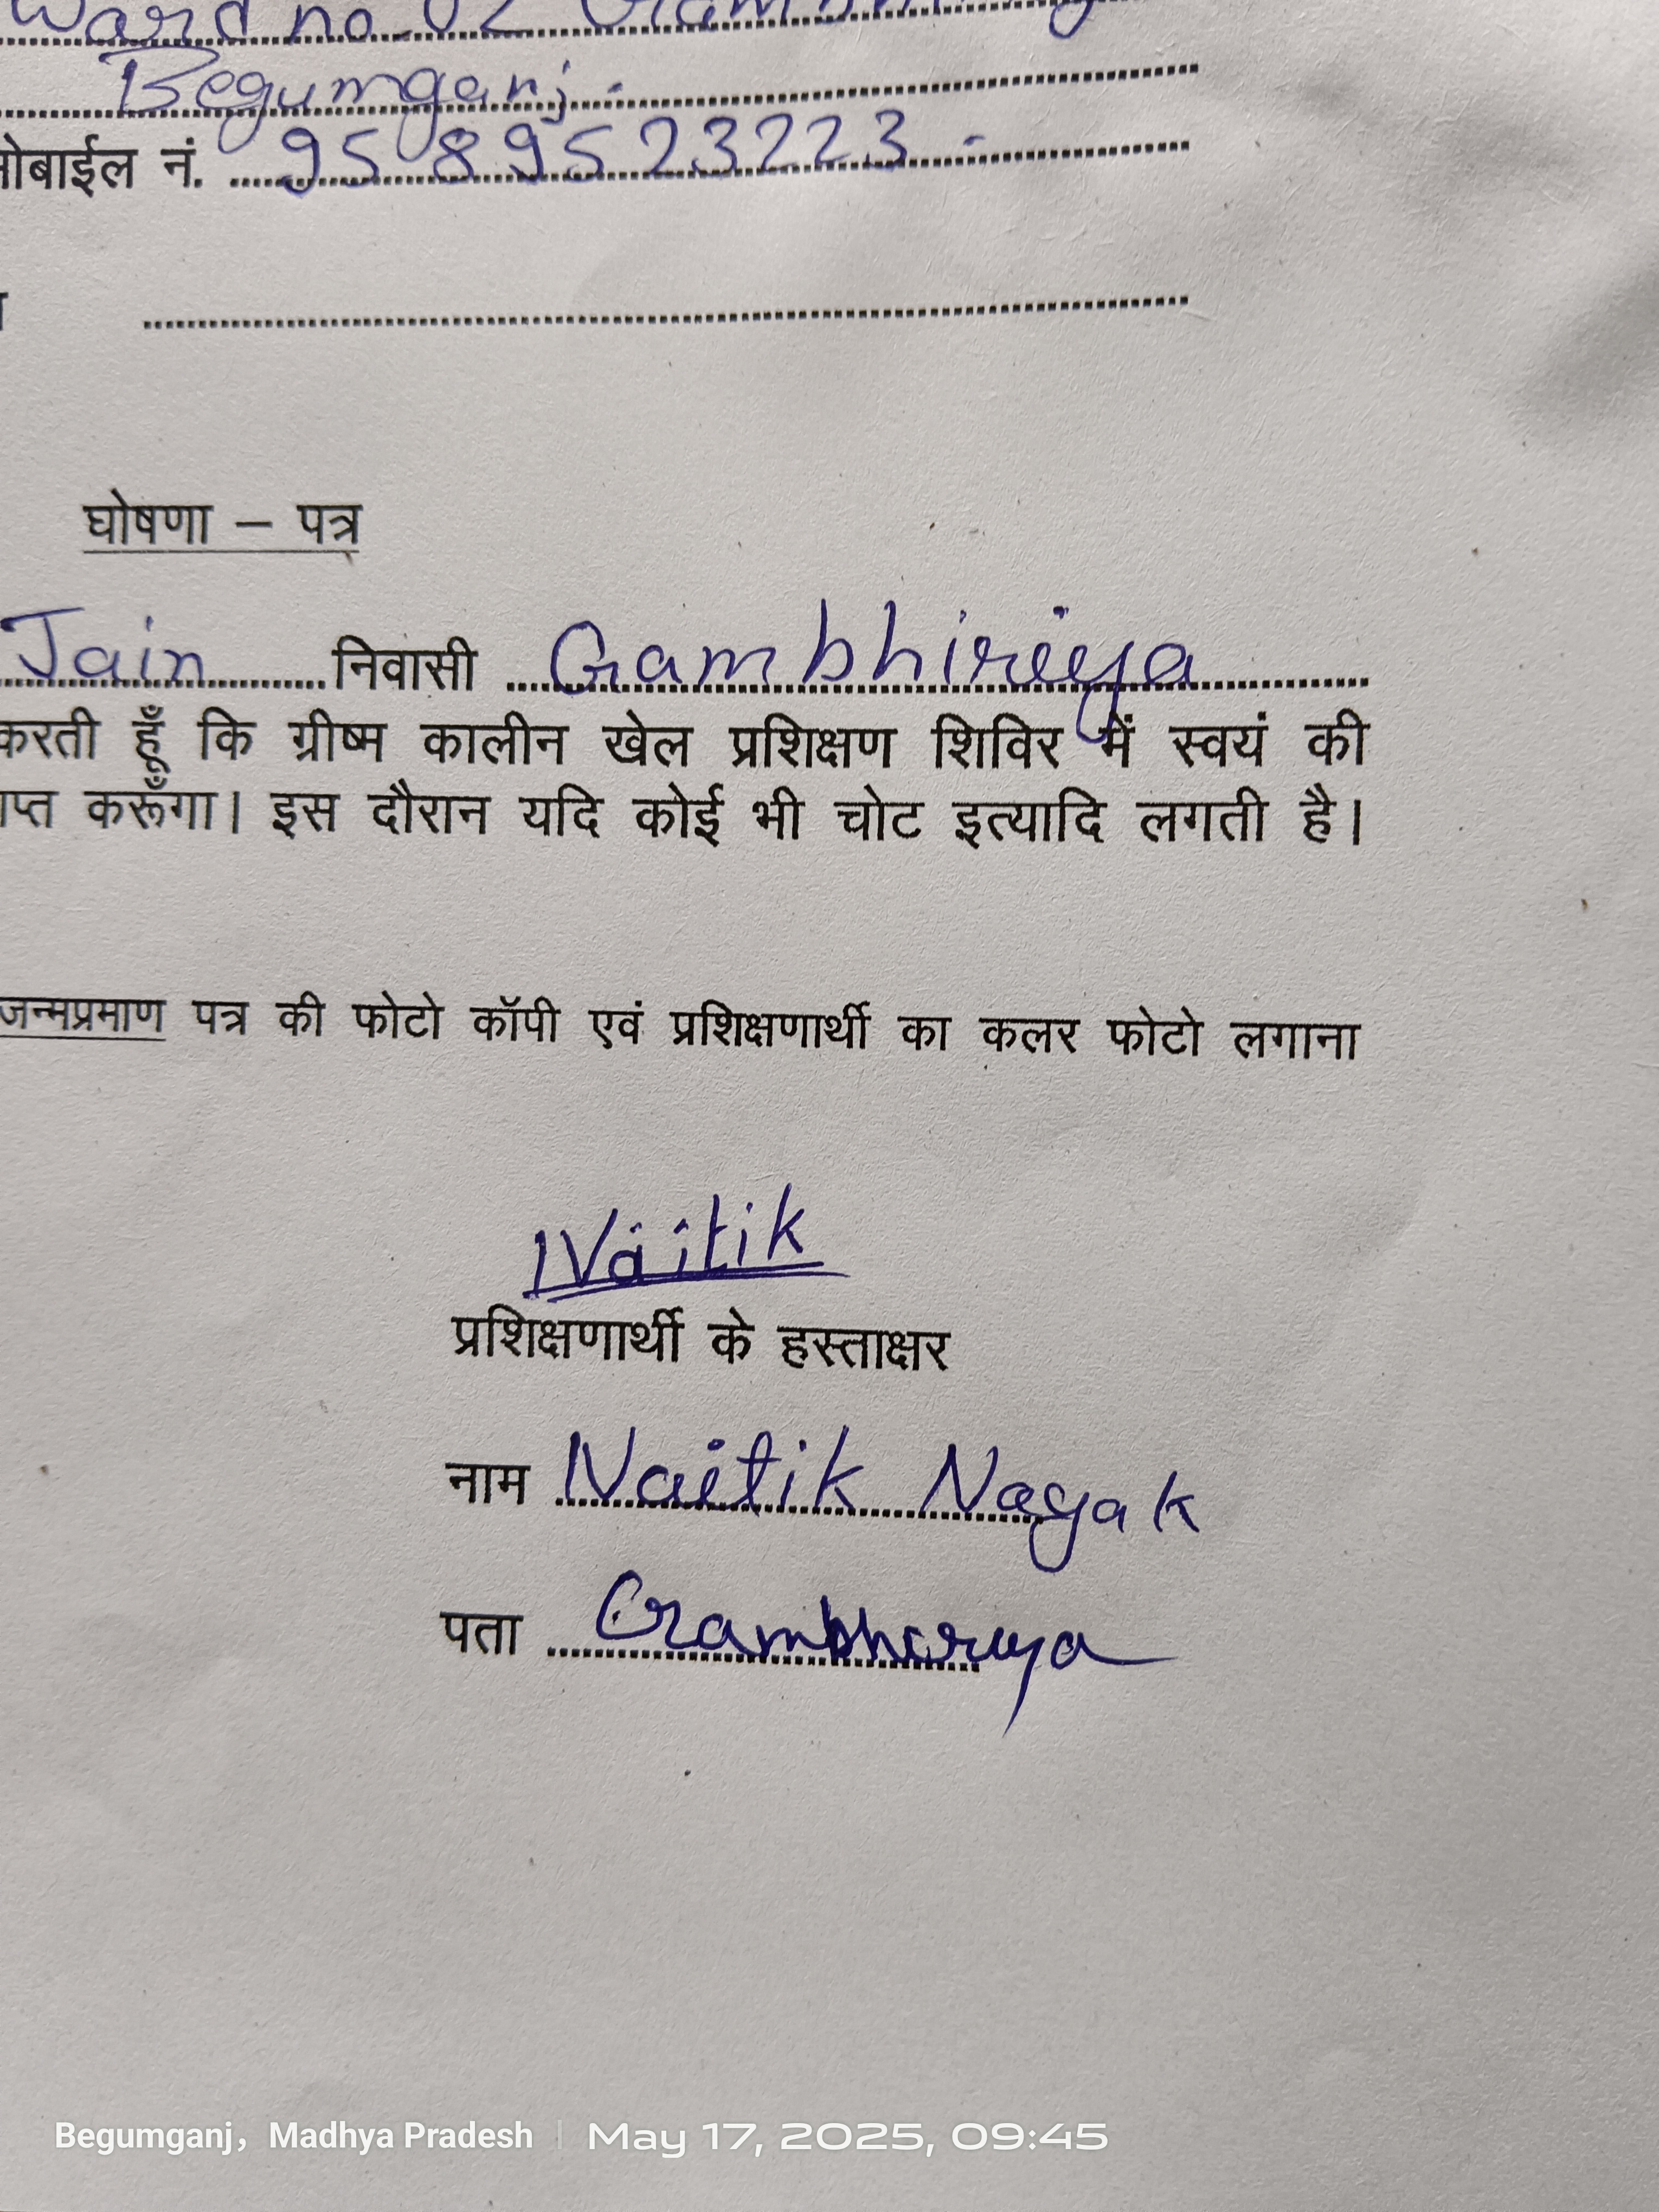 Ward no. 02
Begumganj.
मोबाईल नं. 9589523223 -
घोषणा – पत्र
Jain निवासी Gambhiriya
करती हूँ कि ग्रीष्म कालीन खेल प्रशिक्षण शिविर में स्वयं की
करूँगा। इस दौरान यदि कोई भी चोट इत्यादि लगती है।
जन्मप्रमाण पत्र की फोटो कॉपी एवं प्रशिक्षणार्थी का कलर फोटो लगाना
Naitik
प्रशिक्षणार्थी के हस्ताक्षर
नाम Naitik Nayak
पता Gambhiriya
Begumganj, Madhya Pradesh | May 17, 2025, 09:45